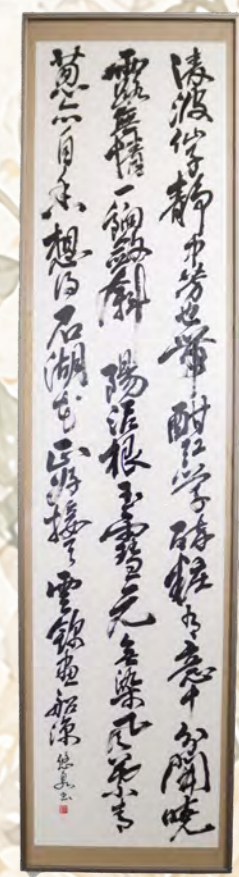 凌波仙子静中芳也帯酣紅学酔粧有意十分開暁
露無情一餉斂斜陽泥根玉雪元無染風葉青
葱亦自香想得石湖花正好接天雲錦画船涼